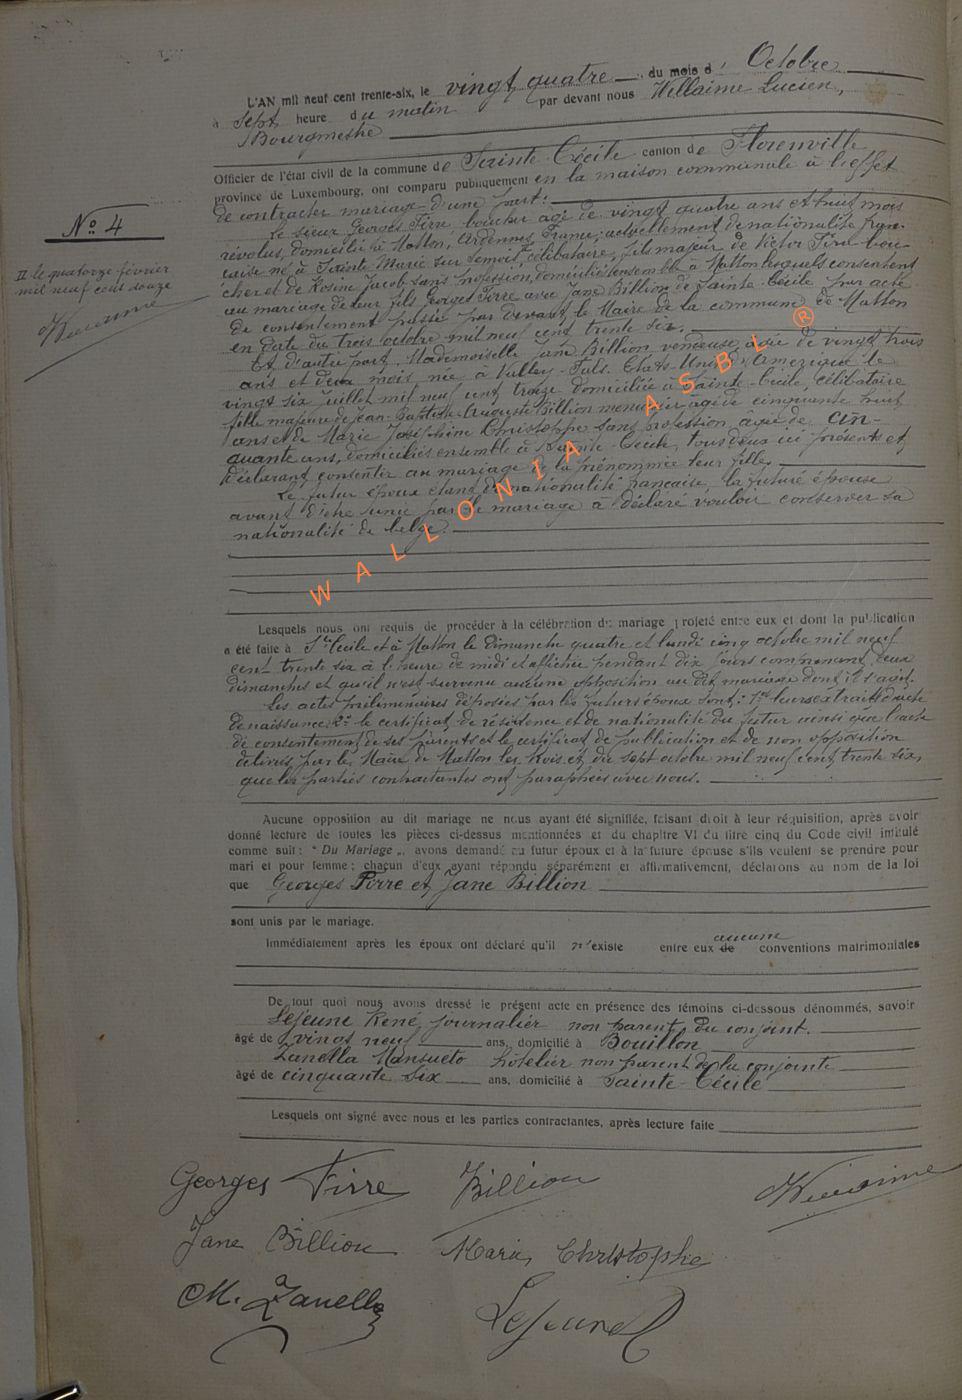 L'AN mil neuf cent trente-six, le vingt quatre du mois d' Octobre
à sept heure du matin par devant nous Willaime Lucien,
Bourgmestre
Officier de l'état civil de la commune de Sainte-Cécile canton de Florenville
province de Luxembourg, ont comparu publiquement en la maison communale à l'effet
de contracter mariage d'une part:
Nº 4
Le sieur Georges Pirre boucher âgé de vingt quatre ans et huit mois
révolus, domicilié à Matton, Ardennes France; actuellement de nationalité fran-
çaise né à Sainte Marie sur Semois, II célibataire, fils majeur de Victor Pirre bou-
cher et de Rosine Jacob sans profession, domiciliés ensemble à Matton lesquels consentent
II le quatorze février
mil neuf cent douze
Willaime
au mariage de leur fils Georges Pirre avec Jane Billion de Sainte-Cécile par acte
de consentement passé par devant le Maire de la commune de Matton
en date du trois octobre mil neuf cent trente six.
Et d'autre part, Mademoiselle Jane Billion vendeuse, âgée de vingt trois
ans et deux mois, née à Valley-Fals. Etats-Unis d'Amérique le
vingt six juillet mil neuf cent treize domiciliée à Sainte-Cécile, célibataire
fille majeure de Jean-Baptiste-Auguste Billion menuisier âgé de cinquante huit
ans et de Marie Joséphine Christophe sans profession âgée de cin-
quante ans, domiciliés ensemble à Sainte-Cécile, tous deux ici présents et
déclarant consentir au mariage de la prénommée leur fille.
Le futur époux étant de nationalité française, la future épouse
avant d'être unie par le mariage a déclaré vouloir conserver sa
nationalité de belge.
WALLONIA ASBL ®
Lesquels nous ont requis de procéder à la célébration du mariage projeté entre eux et dont la publication
a été faite à Ste Cécile et à Matton le dimanche quatre et lundi cinq octobre mil neuf
cent trente six à l'heure de midi et affichée pendant dix jours comprenant deux
dimanches et qu'il n'est survenu aucune opposition au dit mariage dont il s'agit.
Les actes préliminaires déposés par les futurs époux sont: 1º leurs extraits d'acte
de naissance, 2º le certificat de résidence et de nationalité du futur ainsi que l'acte
de consentement de ses parents et le certificat de publication et de non opposition
délivrés par le Maire de Matton les trois et du sept octobre mil neuf cent trente six,
que les parties contractantes ont paraphées avec nous.
Aucune opposition au dit mariage ne nous ayant été signifiée, faisant droit à leur réquisition, après avoir
donné lecture de toutes les pièces ci-dessus mentionnées et du chapitre VI du titre cinq du Code civil intitulé
comme suit: " Du Mariage ", avons demandé au futur époux et à la future épouse s'ils veulent se prendre pour
mari et pour femme; chacun d'eux ayant répondu séparément et affirmativement, déclarons au nom de la loi
que Georges Pirre et Jane Billion
sont unis par le mariage.
Immédiatement après les époux ont déclaré qu'il n'existe entre eux de aucune conventions matrimoniales
De tout quoi nous avons dressé le présent acte en présence des témoins ci-dessous dénommés, savoir
Lejeune René, journalier non parent du conjoint.
âgé de vingt neuf ans, domicilié à Bouillon
Zanella Mansueto hôtelier non parent de la conjointe
âgé de cinquante six ans, domicilié à Sainte-Cécile
Lesquels ont signé avec nous et les parties contractantes, après lecture faite
Georges Pirre Billion Willaime
Jane Billion Marie Christophe
M. Zanella Lejeune R